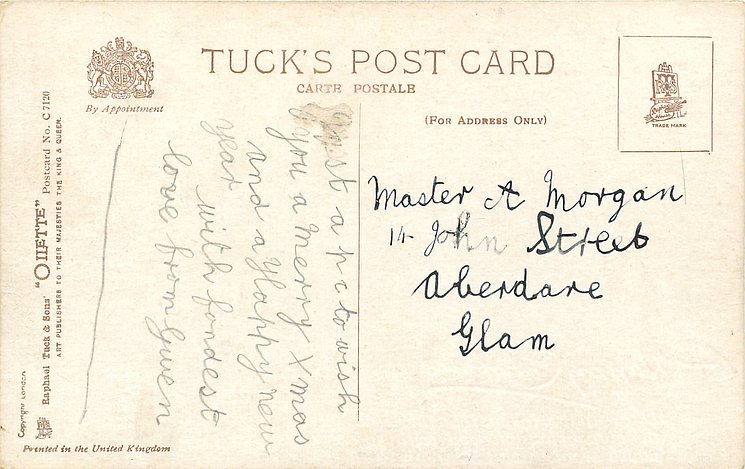 TUCK'S POST CARD
CARTE POSTALE
(FOR ADDRESS ONLY)
By Appointment
TRADE MARK
Just a p c to wish
you a Merry Xmas
and a Happy new
year with fondest
love from Gwen
Master A Morgan
14 John Street
Aberdare
Glam
Raphael Tuck & Sons' "OILETTE" Postcard No. C 7120
ART PUBLISHERS TO THEIR MAJESTIES THE KING & QUEEN.
Copyright London
Printed in the United Kingdom